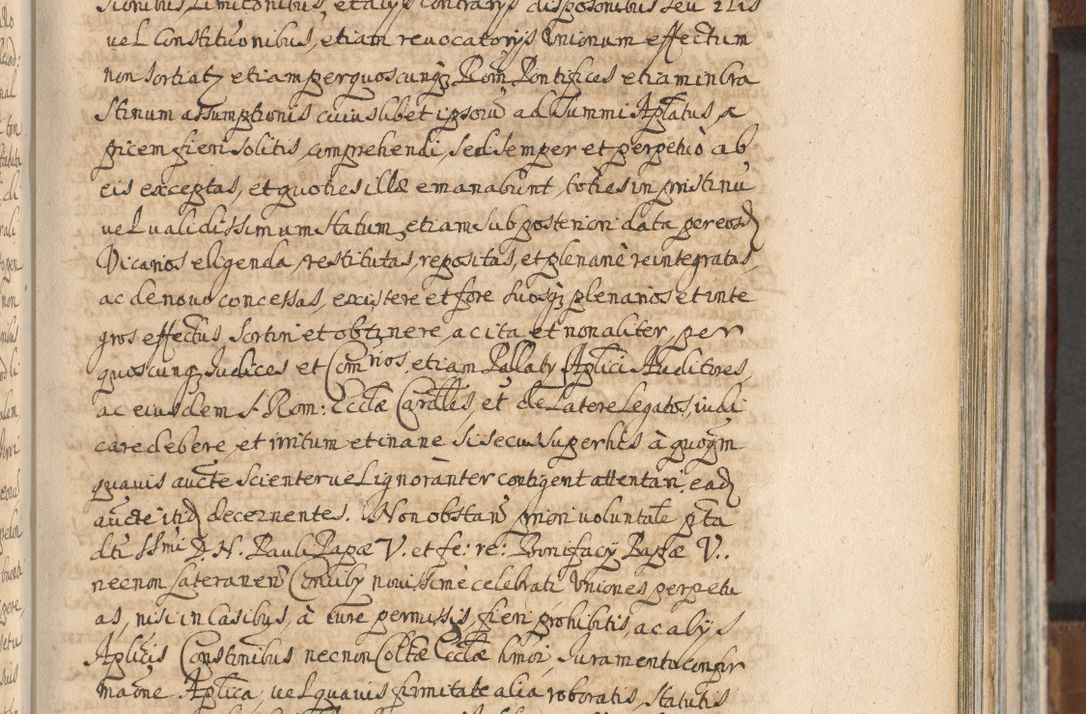 sionibus, Limitonibus, et alys contrarys disposonibus seu
vel Constitutionibus, etiam revocatorijs Unionum effectum
non sortiatz etiam per quoscunqz Rom. Pontifices etiam in cra
stinum assumptionis cuiuslibet ipsorū ad Summi Aplatus, a
picem fieri solitis, comprehendi, sed semper et perpetuò ab
eis exceptas, et quoties illæ emanabunt, toties in pristinū
vel validissimum statum, etiam sub posteriori data per eosd
Vicarios eligenda, restitutas, repositas, et plenariè reintegratas,
ac de novo concessas, existere et fore suosqz plenarios et inte
gros effectus, sortiri et obtinere, ac ita et non aliter, per
quoscunqz Iudices et Com̄rios, etiam Pallaty Aplici Auditores,
ac eiusdem S. Rom: Ecclæ Cardles, et de Latere Legatos, iudi
care debere, et irritum et inane si secus super his à quoqm
quavis aucte scienter vel ignoranter contigerit attentari, ead
aucte itid decernentes. Non obstan priori voluntate pta
dti ssmi D. N. Pauli Papæ V. et fe: re: Bonifacy Papæ V..
necnon Lateranen Concily novissimè celebrati Uniones perpetu
as, nisi in Casibus, à iure permissis, fieri prohibitis, ac alys
Aplicis Constinibus necnon Coltæ Ecclæ hmoi, Iuramento confir
maone Aplica, vel quavis firmitate alia roboratis, Statutis